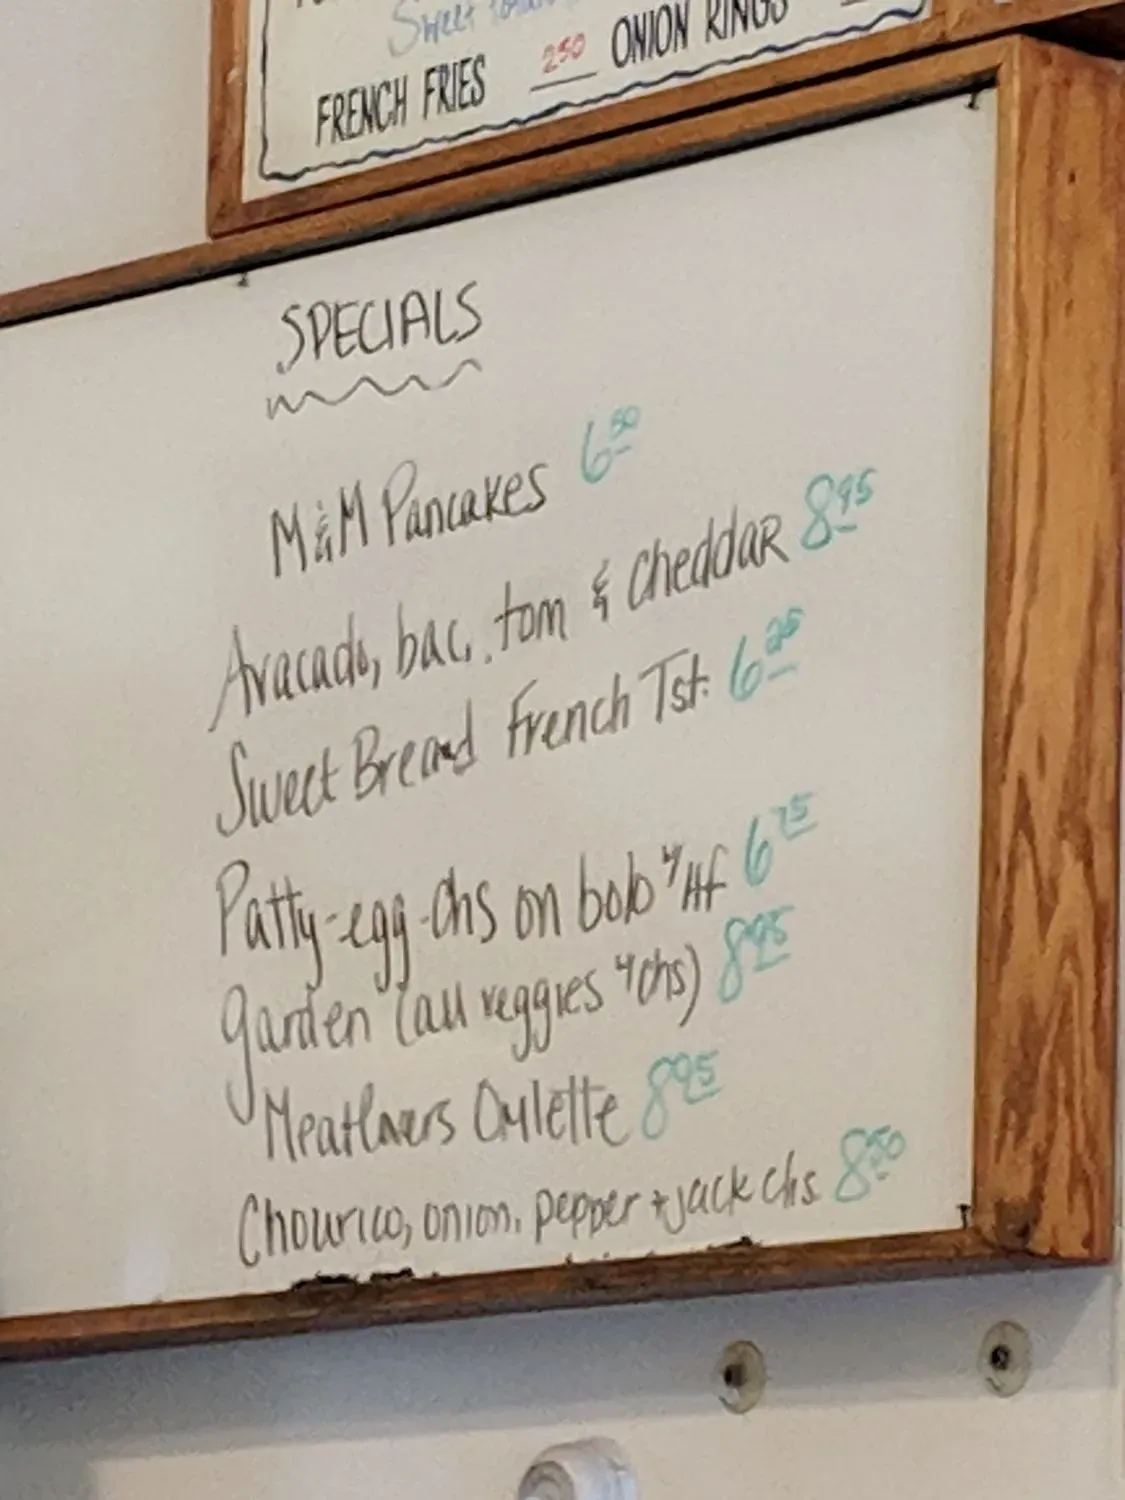 Sweet
FRENCH FRIES 250 ONION RINGS
SPECIALS
M&M Pancakes 6 50
Avacado, bac, tom & Cheddar 8 95
Sweet Bread French Tst. 6 25
Patty-egg-chs on bolo w/Hf 6 75
Garden (all veggies w/chs) 8 95
Meatlovers Omlette 8 95
Chourico, onion, pepper + jack chs 8 50